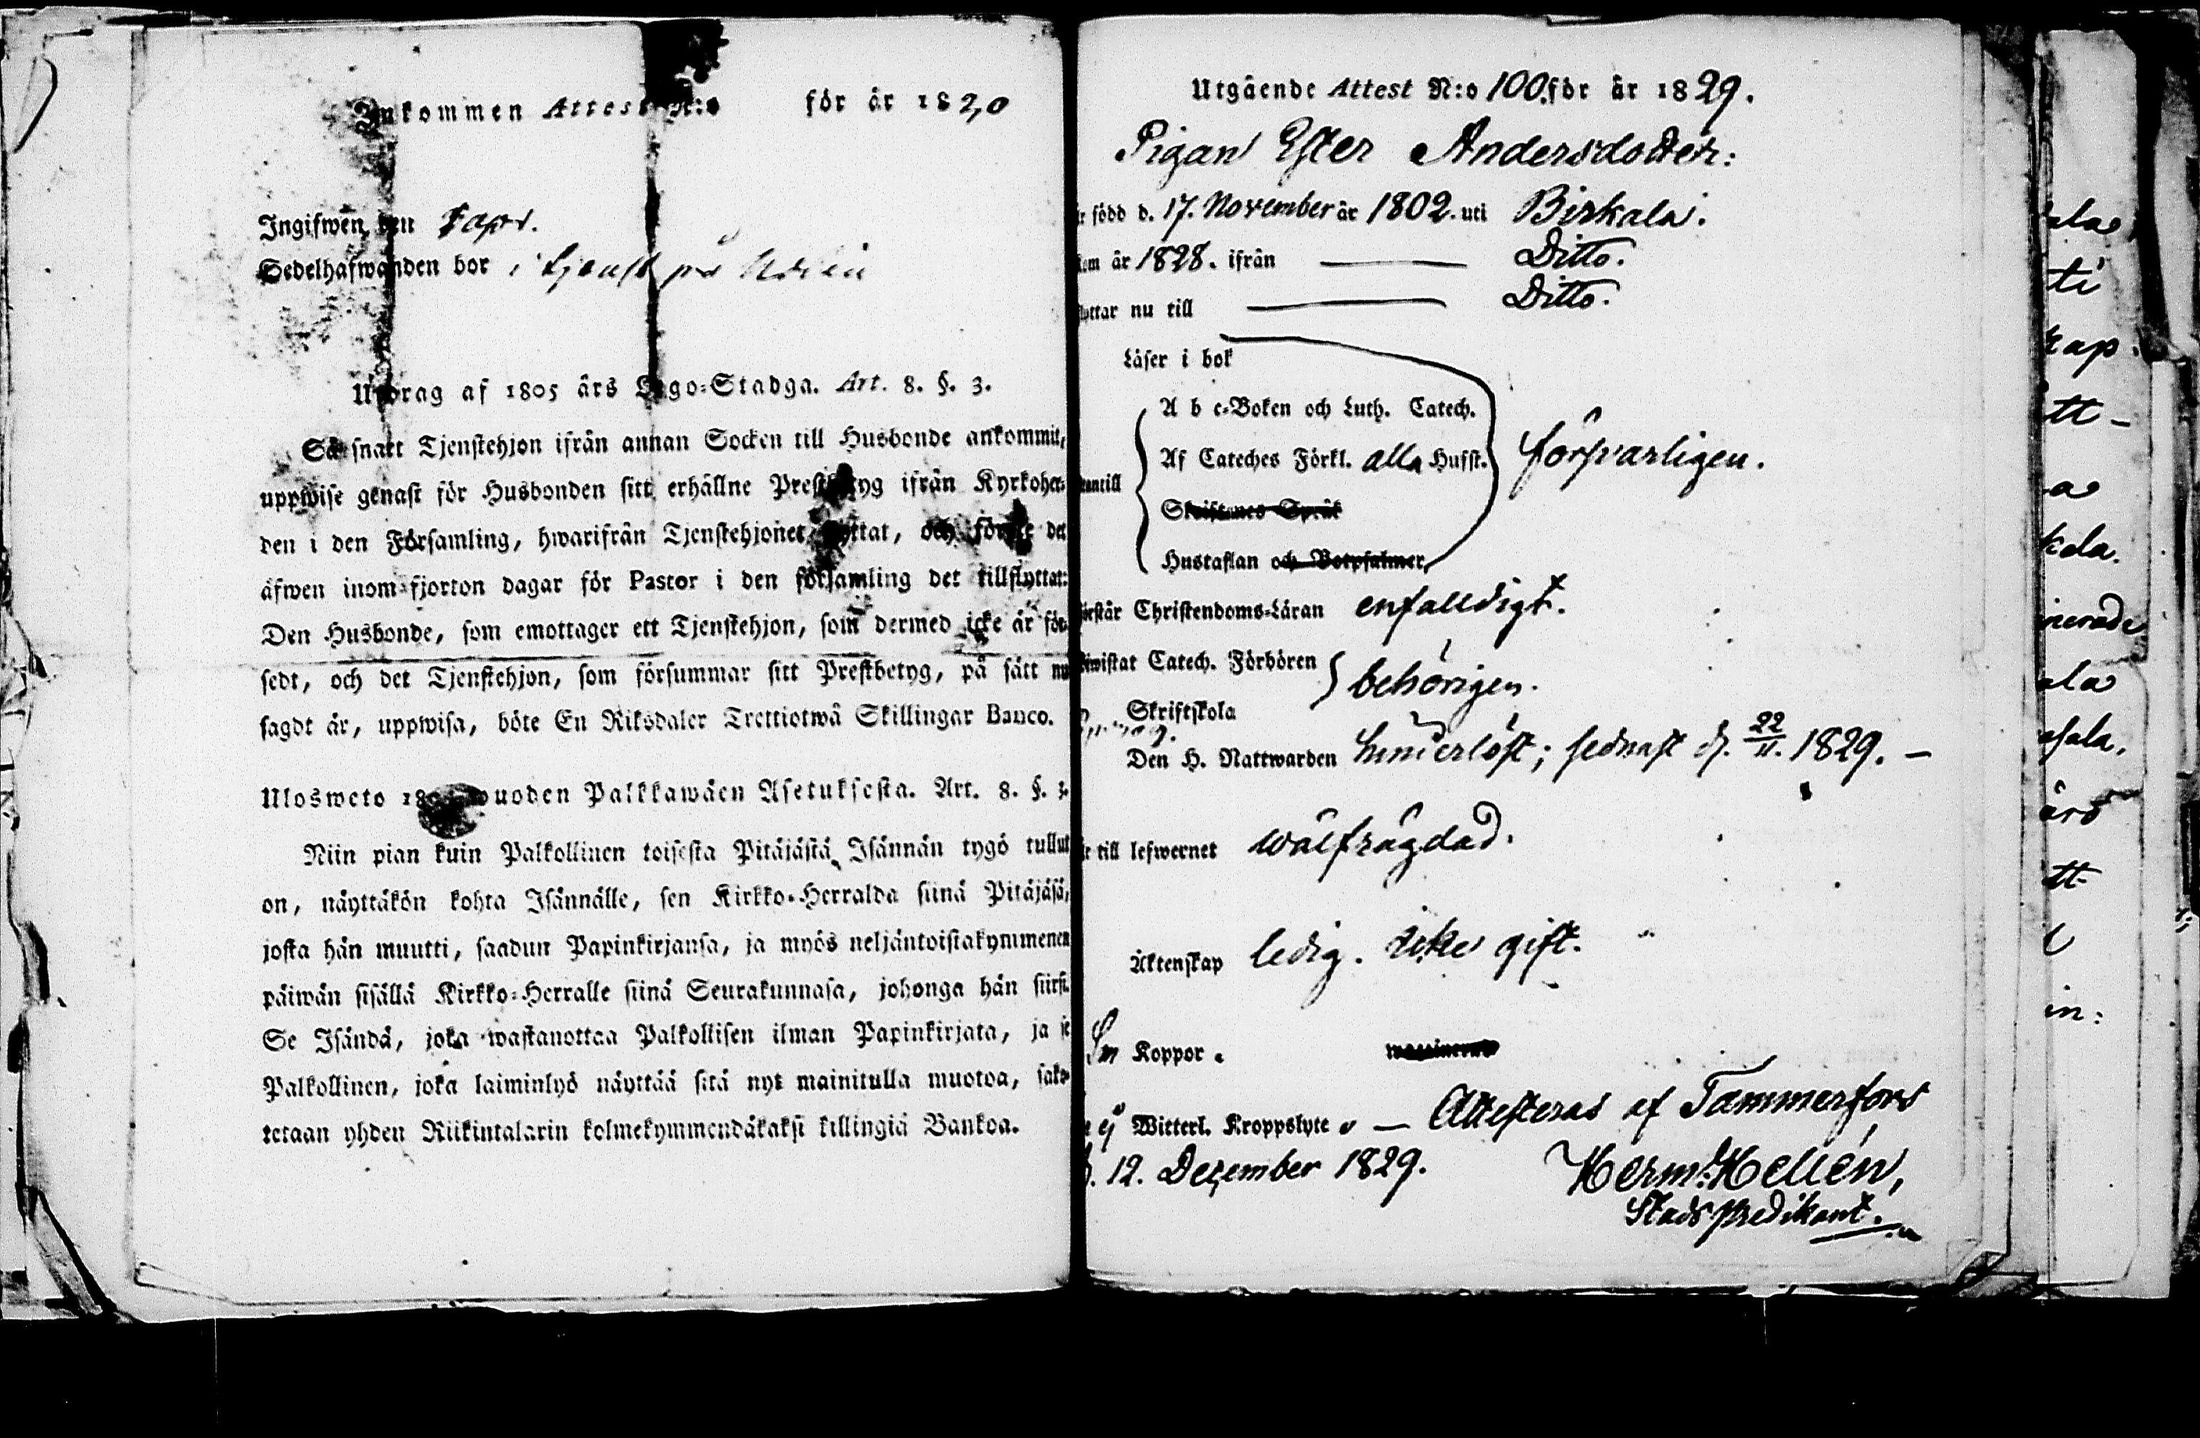 Inkommen Attest N:o för år 182,0
Ingifwen den 7 apr.
Sedelhafwanden bor i tjenst på
Utdrag af 1805 års Lego-Stadga. Art. 8. §. 3.
Så snart Tjenstehjon ifrån annan Socken till Husbonde ankommit,
uppwise genast för Husbonden sitt erhållne Prestbetyg ifrån Kyrkoher-
den i den Församling, hwarifrån Tjenstehjonet flyttat, och förete det
äfwen inom fjorton dagar för Pastor i den församling det tillflyttat:
Den Husbonde, som emottager ett Tjenstehjon, som dermed icke är för-
sedt, och det Tjenstehjon, som försummar sitt Prestbetyg, på sätt nu
sagdt är, uppwisa, böte En Riksdaler Trettiotwå Skillingar Banco.
Ulosweto 1805 wuoden Palkkawäen Asetuksesta. Art. 8. §. 3.
Niin pian kuin Palkollinen toisesta Pitäjästä Isännän tygö tullut
on, näyttäkön kohta Isännälle, sen Kirkko-Herralda siinä Pitäjäsä,
josta hän muutti, saadun Papinkirjansa, ja myös neljäntoistakymmenen
päiwän sisällä Kirkko-Herralle siinä Seurakunnasa, johonga hän siirsi.
Se Isändä, joka wastanottaa Palkollisen ilman Papinkirjata, ja se
Palkollinen, joka laiminlyö näyttää sitä nyt mainitulla muotoa, sako-
tetaan yhden Riikintalarin kolmekymmendäkaksi killingiä Bankoa.
Utgående Attest N:o 100. för år 1829.
Pigan Ester Andersdotter:
är född d. 17. November år 1802. uti Birkala.
kom år 1828. ifrån — Ditto.
flyttar nu till — Ditto.
Läser i bok
A b c-Boken och Luth. Catech.
utantill Af Cateches Förkl. alla Hufst. försvarligen.
Skriftenes Språk
Hustaflan och Botpsalmer,
förstår Christendoms-Läran enfalldigt.
bewistat Catech. Förhören behörigen.
Skriftskola
Den H. Nattwarden hinderlöst; sednast d. 22/11. 1829. —
är till lefwernet wälfrägdad.
Äktenskap ledig. icke gift.
Koppor.
ej Witterl. Kroppslyte. — Attesteras af Tammerfors
d. 12. December 1829. Herm: Hellén,
Stads predikant.
ala
ti
kap.
tt-
a
kala.
nerade
ala
afala.
ärd
tt-
in: